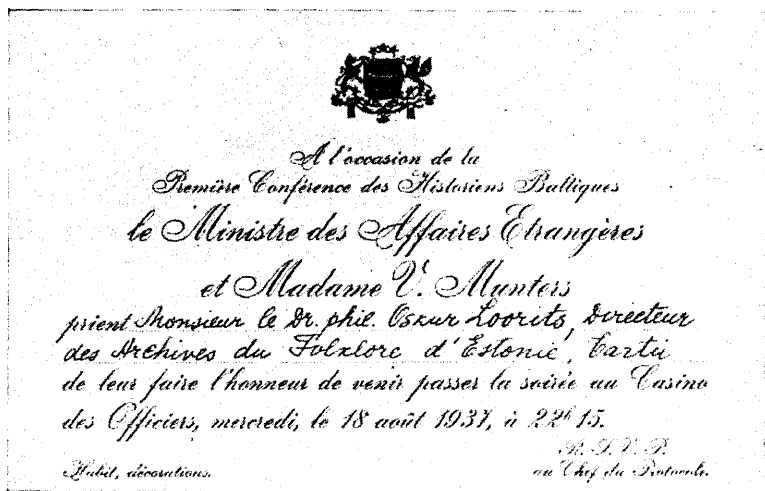 A l'occasion de la
Première Conférence des Historiens Baltiques
le Ministre des Affaires Etrangères
et Madame V. Munters
prient Monsieur le Dr. phil. Oskar Loorits, Directeur
des Archives du Folklore d'Estonie, Tartu
de leur faire l'honneur de venir passer la soirée au Casino
des Officiers, mercredi, le 18 août 1937, à 22h 15.
R. S. V. P.
Habit, décorations.
au Chef du Protocole.